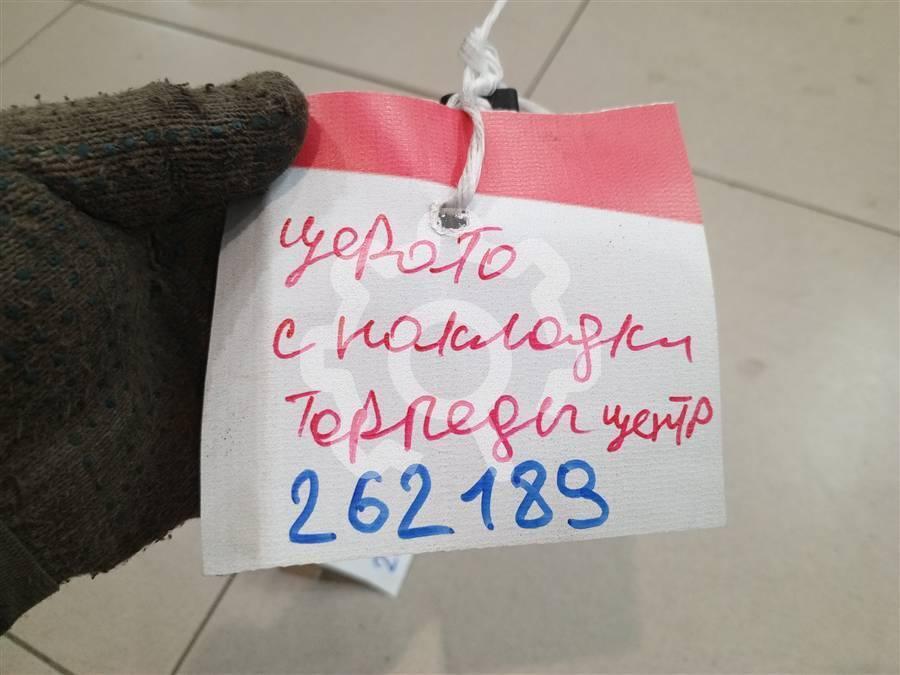 Церото
с накладки
торпеды центр
262189
2